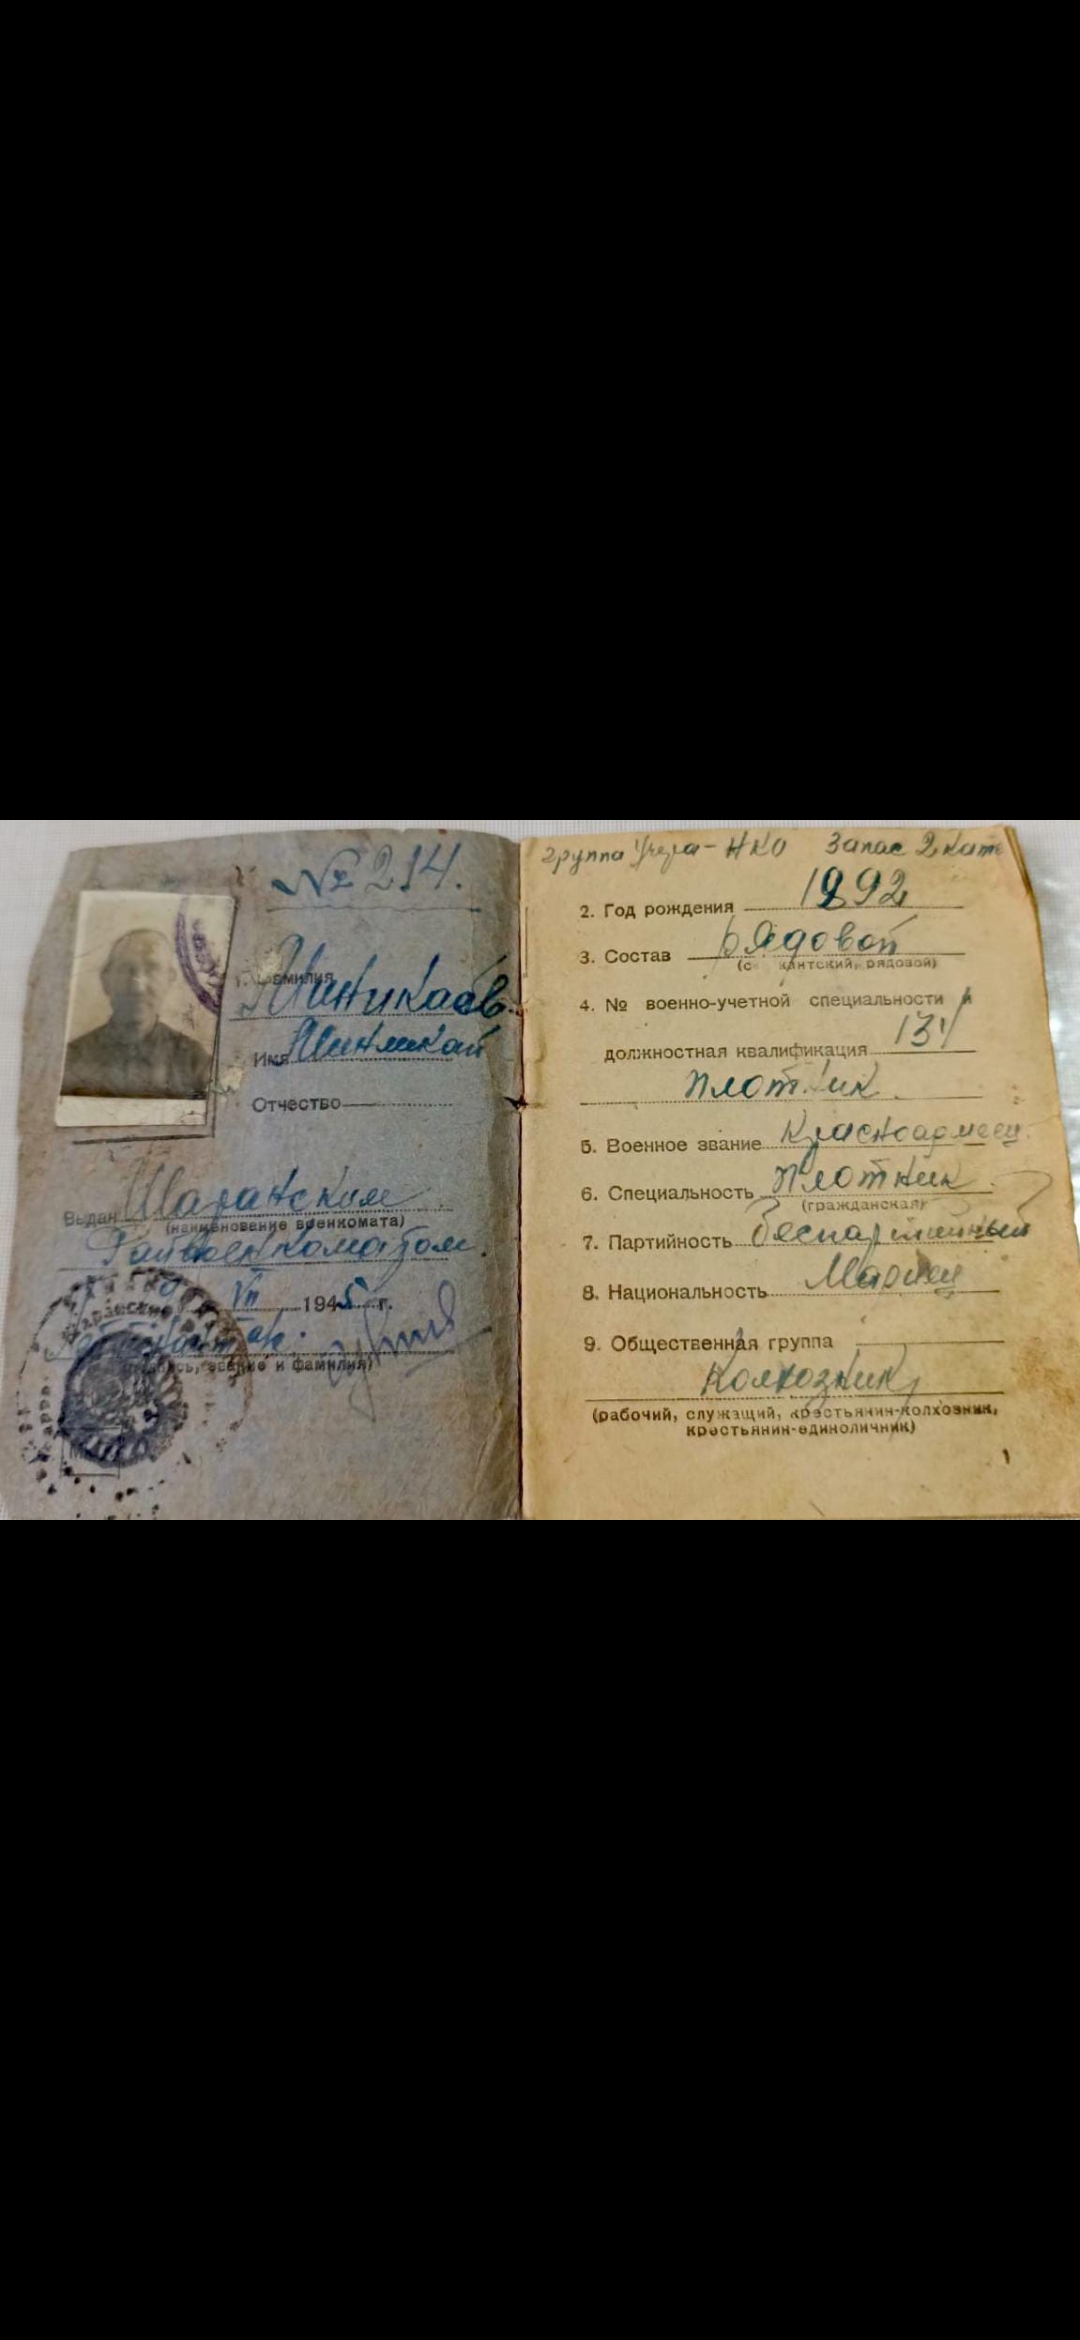 № 214.
1. Фамилия
Миникаев
Имя Минликай
Отчество
Выдан Шаранским
(наименование военкомата)
Райвоенкоматом.
VII 1945 г.
(подпись, звание и фамилия)
группа учета - НКО Запас 2 кате
2. Год рождения 1892
3. Состав рядовой
(с жантский, рядовой)
4. № военно-учетной специальности и
должностная квалификация 134
плотник.
5. Военное звание Красноармеец.
6. Специальность Плотник
(гражданская)
7. Партийность беспартийный
8. Национальность Мариец
9. Общественная группа
Колхозник
(рабочий, служащий, крестьянин-колхозник,
крестьянин-единоличник)
1